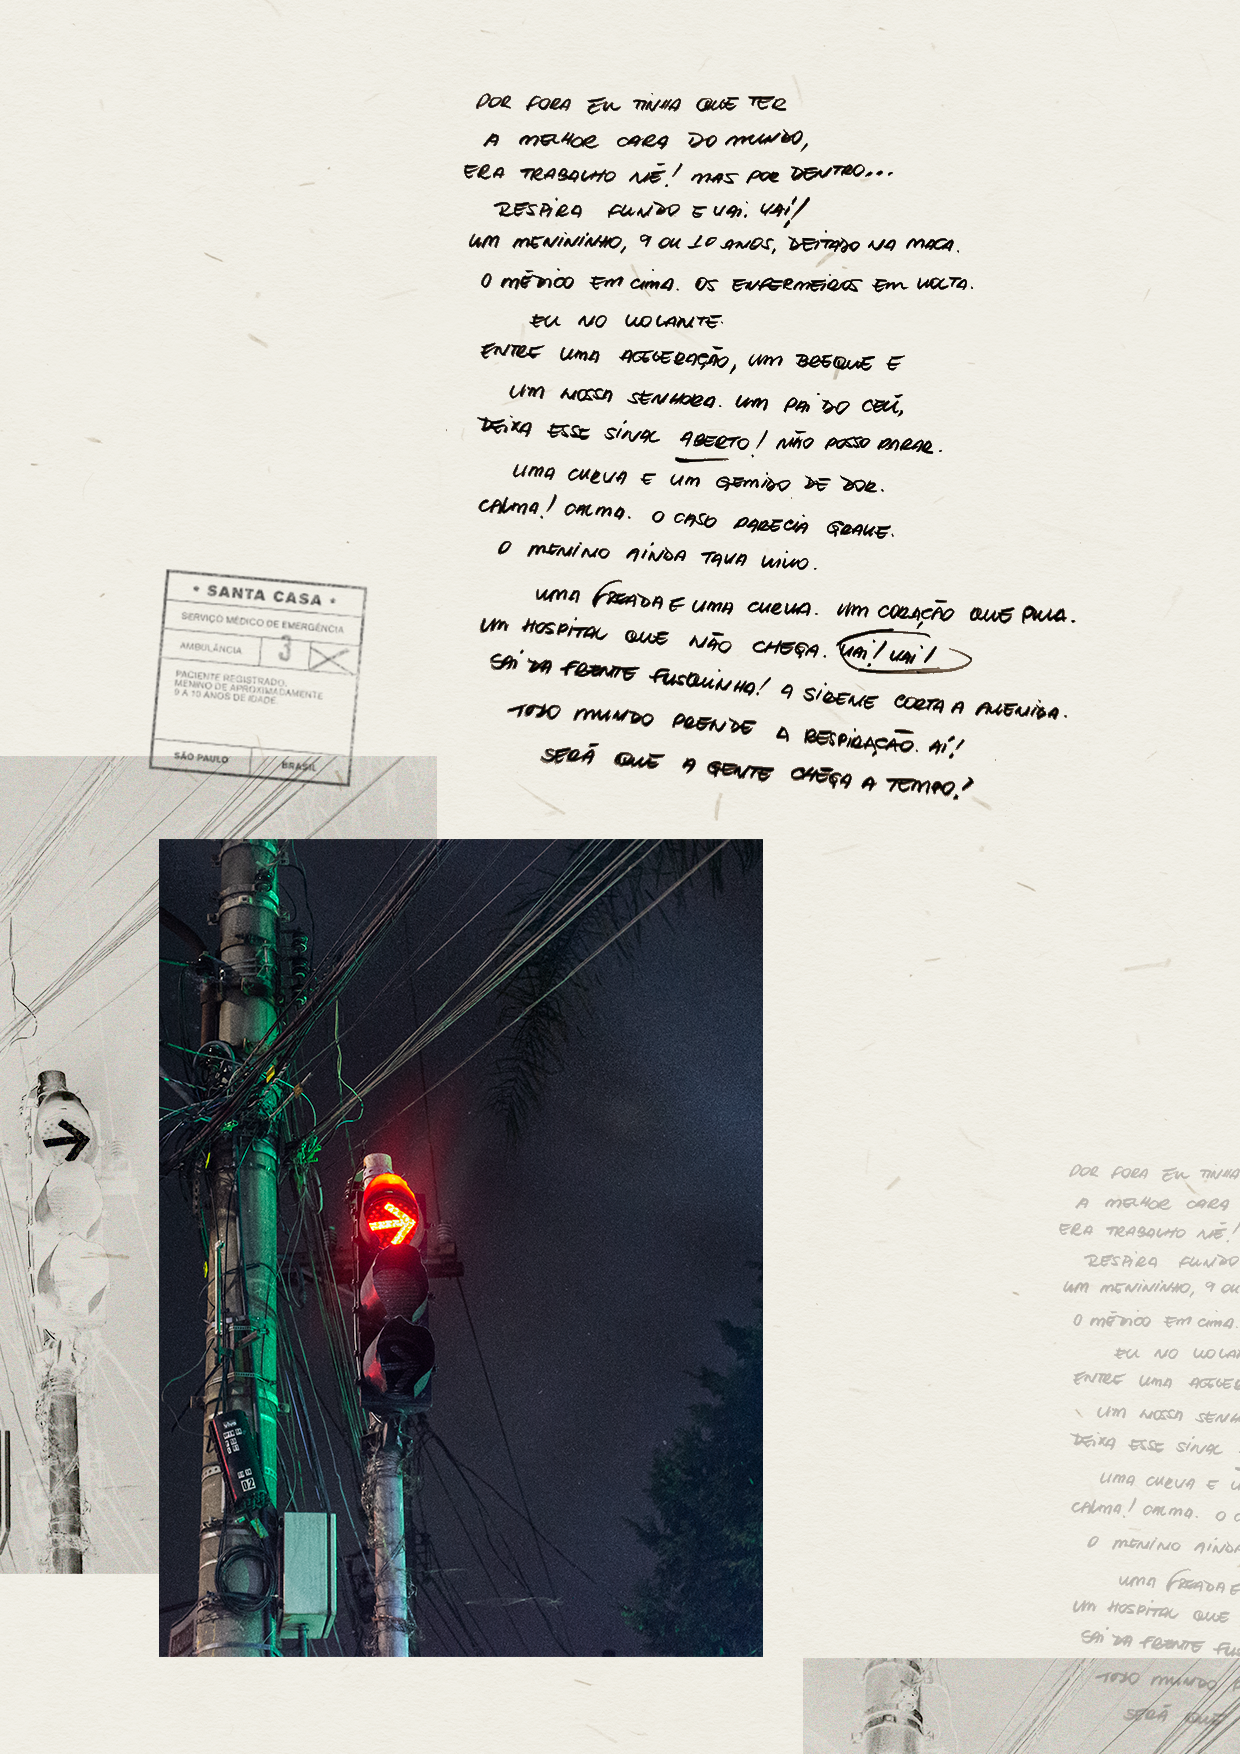 POR FORA EU TINHA QUE TER
A MELHOR CARA DO MUNDO,
ERA TRABALHO NÉ! MAS POR DENTRO...
RESPIRA FUNDO E VAI. VAI!
UM MENININHO, 9 OU 10 ANOS, DEITADO NA MACA.
O MÉDICO EM CIMA. OS ENFERMEIROS EM VOLTA.
EU NO VOLANTE.
ENTRE UMA ACELERAÇÃO, UM BREQUE E
UM NOSSA SENHORA. UM PAI DO CÉU,
DEIXA ESSE SINAL ABERTO! NÃO POSSO PARAR.
UMA CURVA E UM GEMIDO DE DOR.
CALMA! CALMA. O CASO PARECIA GRAVE.
O MENINO AINDA TAVA VIVO.
UMA FREADA E UMA CURVA. UM CORAÇÃO QUE PULA.
UM HOSPITAL QUE NÃO CHEGA. VAI! VAI!
SAI DA FRENTE FUSQUINHA! A SIRENE CORTA A AVENIDA.
TODO MUNDO PRENDE A RESPIRAÇÃO. AI!
SERÁ QUE A GENTE CHEGA A TEMPO?
• SANTA CASA •
SERVIÇO MÉDICO DE EMERGÊNCIA
AMBULÂNCIA 3
PACIENTE REGISTRADO,
MENINO DE APROXIMADAMENTE
9 A 10 ANOS DE IDADE
SÃO PAULO BRASIL
vivo
02
POR FORA EU TINHA
A MELHOR CARA
ERA TRABALHO NÉ!
RESPIRA FUNDO
UM MENININHO, 9 OU
O MÉDICO EM CIMA.
EU NO VOLAN
ENTRE UMA ACELER
UM NOSSA SENH
DEIXA ESSE SINAL
UMA CURVA E U
CALMA! CALMA. O C
O MENINO AINDA
UMA FREADA E
UM HOSPITAL QUE
SAI DA FRENTE FUS
TODO MUNDO P
SERÁ QUE